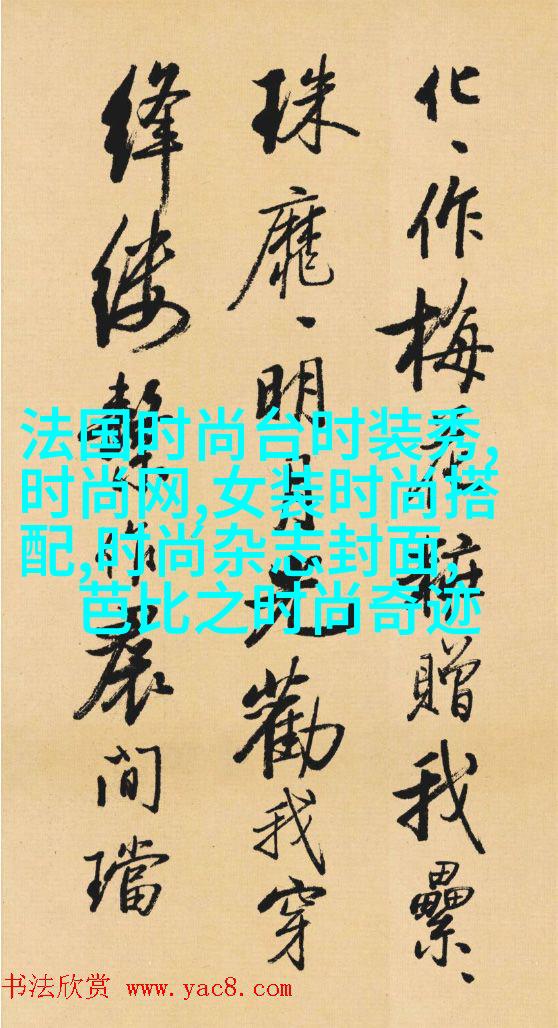 化、作梅花粧贈我纍、
珠靡、明月光勸我穿
絳縷繫作裙間璫
法国时尚台时装秀,
时尚网,女装时尚搭
配,时尚杂志封面,
芭比之时尚奇迹
书法欣赏 www.yac8.com